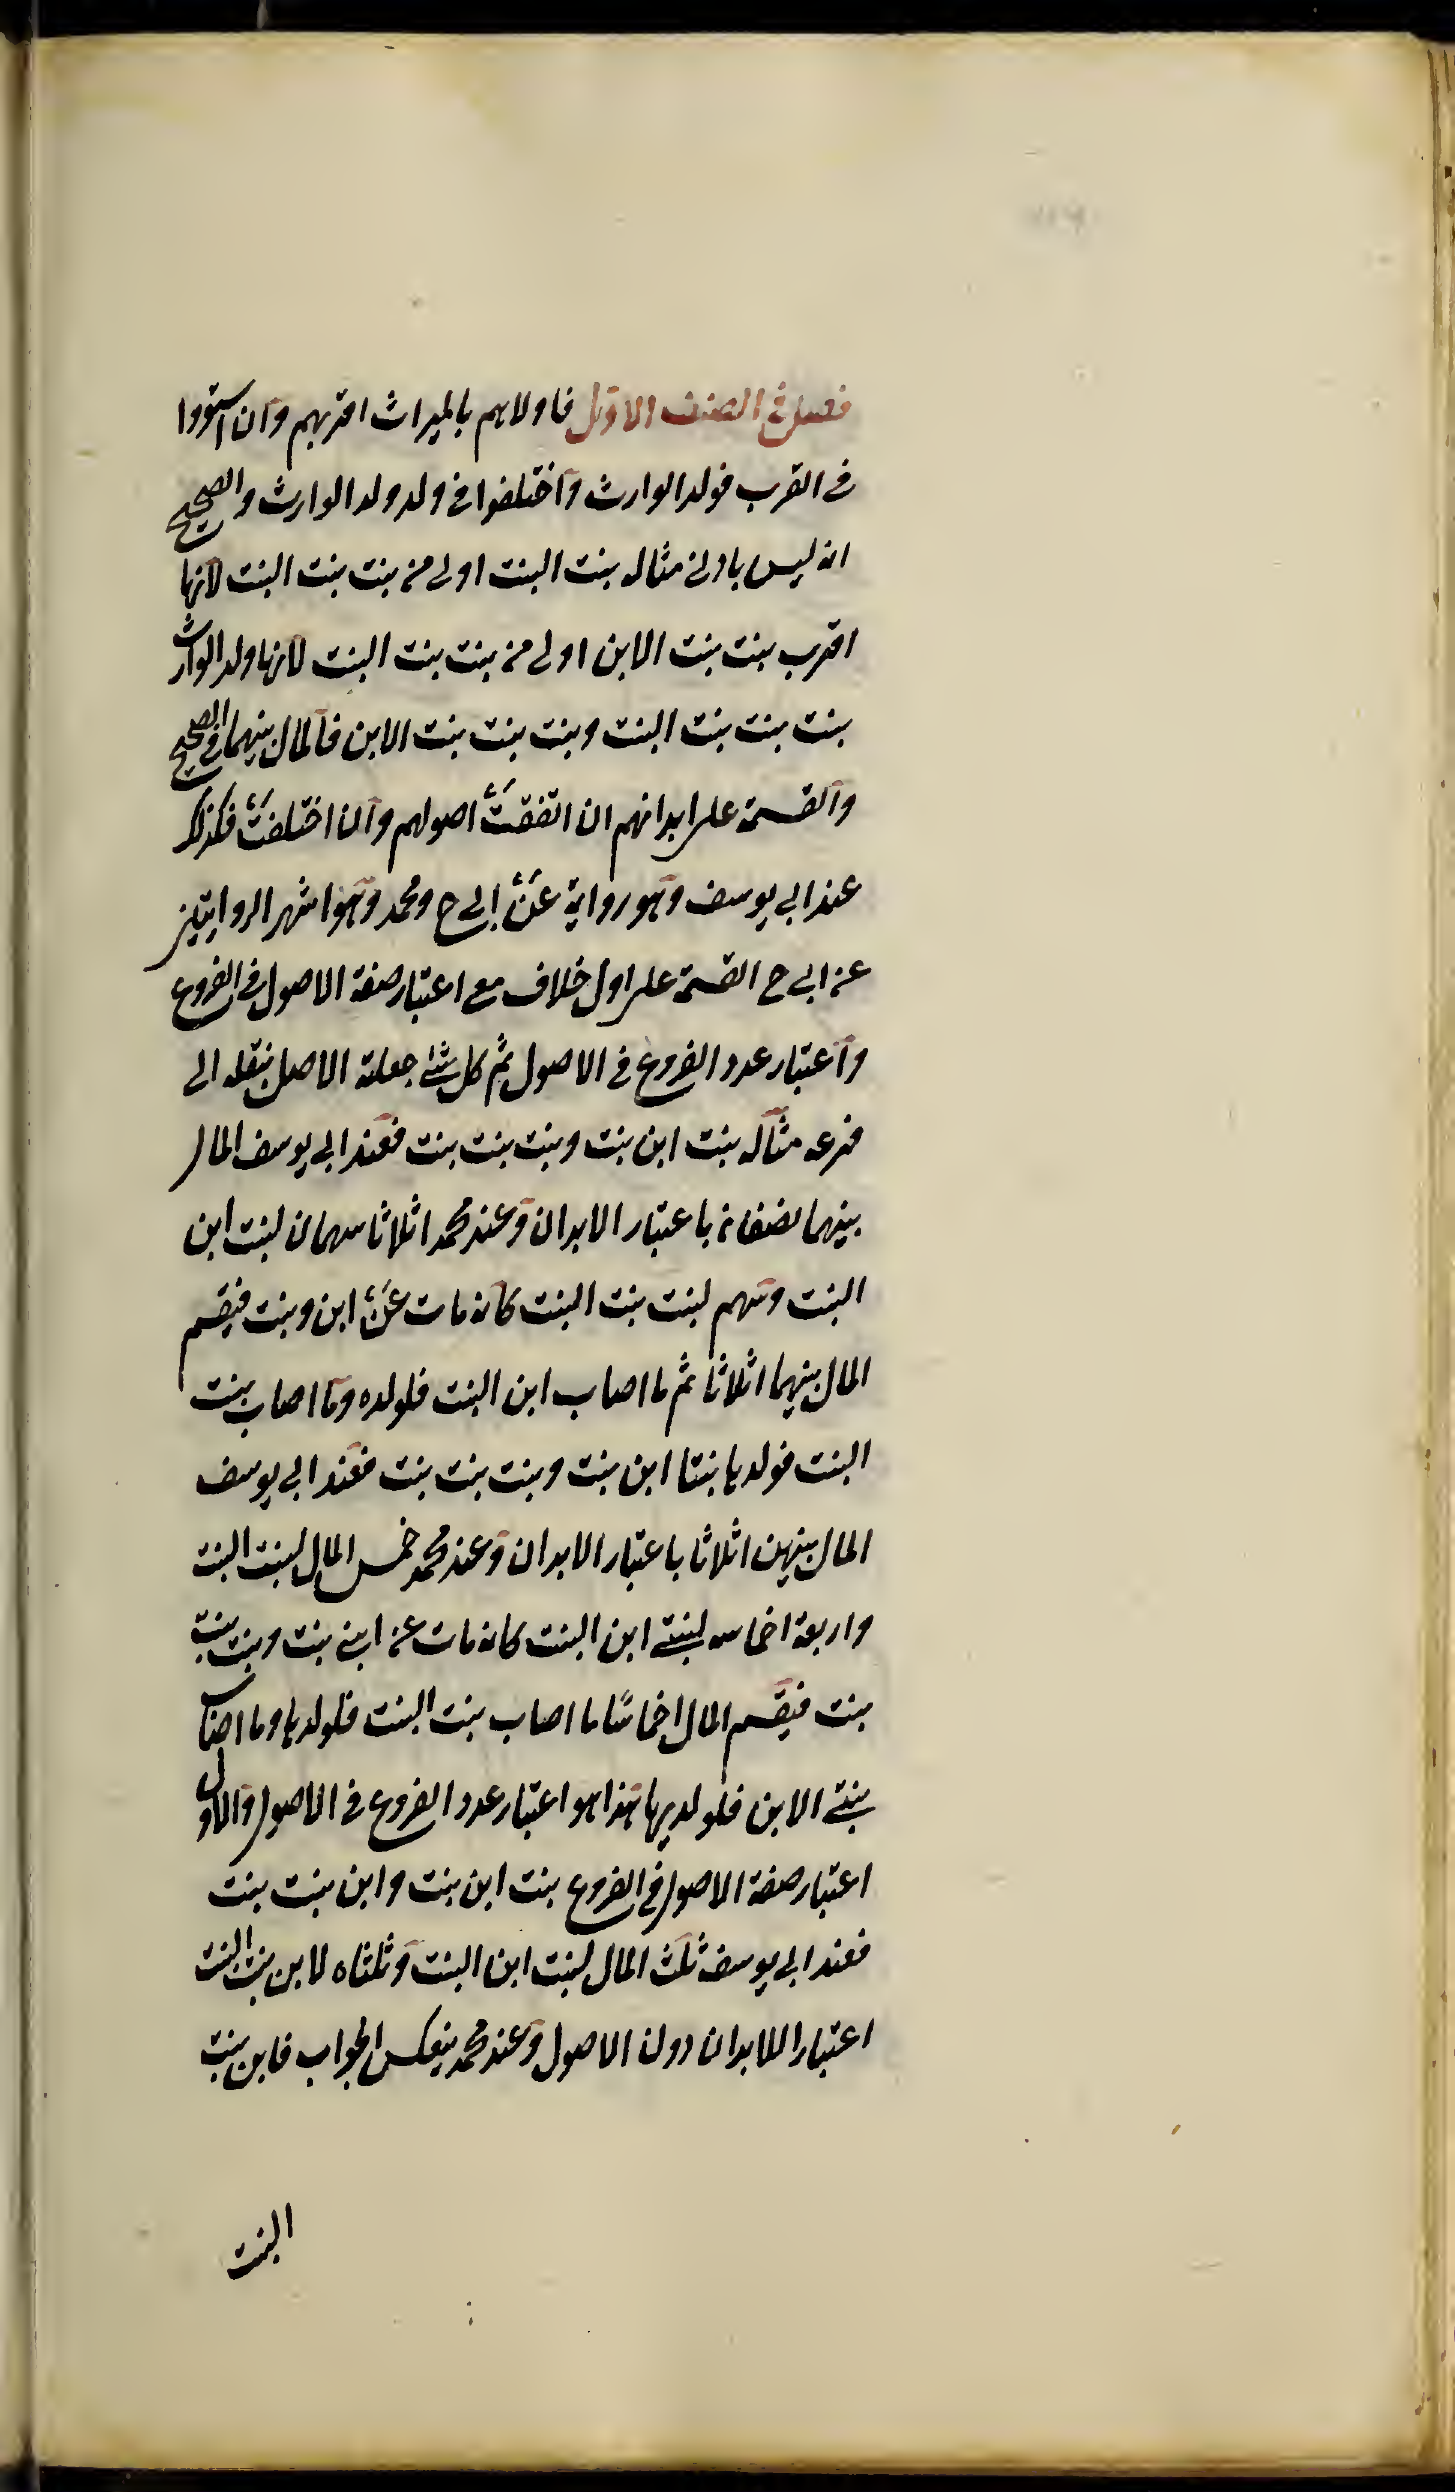 فصل في الصنف الاول فاولاهم بالميراث اقربهم وان استووا
في القرب فولد الوارث واختلفوا في ولد ولد الوارث والصحيح
انه ليس باولى مثاله بنت البنت اولى من بنت بنت البنت لانها
اقرب بنت بنت الابن اولى من بنت بنت البنت لانها ولد الوارث
بنت بنت بنت البنت وبنت بنت بنت الابن فالمال بينهما في الصحيح
والقسمة على ابدانهم ان اتفقت اصولهم وان اختلفت فكذلك
عند ابي يوسف وهو رواية عن ابي ح ومحمد وهو اشهر الروايتين
عن ابي ح القسمة على اول خلاف مع اعتبار صفة الاصول في الفروع
واعتبار عدد الفروع في الاصول ثم كل شئ جعلته الاصل ينقله الى
فرعه مثاله بنت ابن بنت وبنت بنت بنت فعند ابي يوسف المال
بينهما نصفان باعتبار الابدان وعند محمد اثلاثا سهمان لبنت ابن
البنت وسهم لبنت بنت البنت كانه مات عن ابن وبنت فيقسم
المال بينهما اثلاثا ثم ما اصاب ابن البنت فلولده وما اصاب بنت
البنت فولدها بنتا ابن بنت وبنت بنت بنت فعند ابي يوسف
المال بينهن اثلاثا باعتبار الابدان وعند محمد خمس المال لبنت البنت
واربعة اخماسه لبنتي ابن البنت كانه مات عن ابني بنت وبنت بنت
بنت فيقسم المال اخماسًا ما اصاب بنت البنت فلولدها وما اصاب
بنتي الابن فلولديهما هذا هو اعتبار عدد الفروع في الاصول والاول
اعتبار صفة الاصول في الفروع بنت ابن بنت وابن بنت بنت
فعند ابي يوسف ثلث المال لبنت ابن البنت وثلثاه لابن بنت البنت
اعتبارا للابدان دون الاصول وعند محمد ينعكس الجواب فابن بنت
البنت